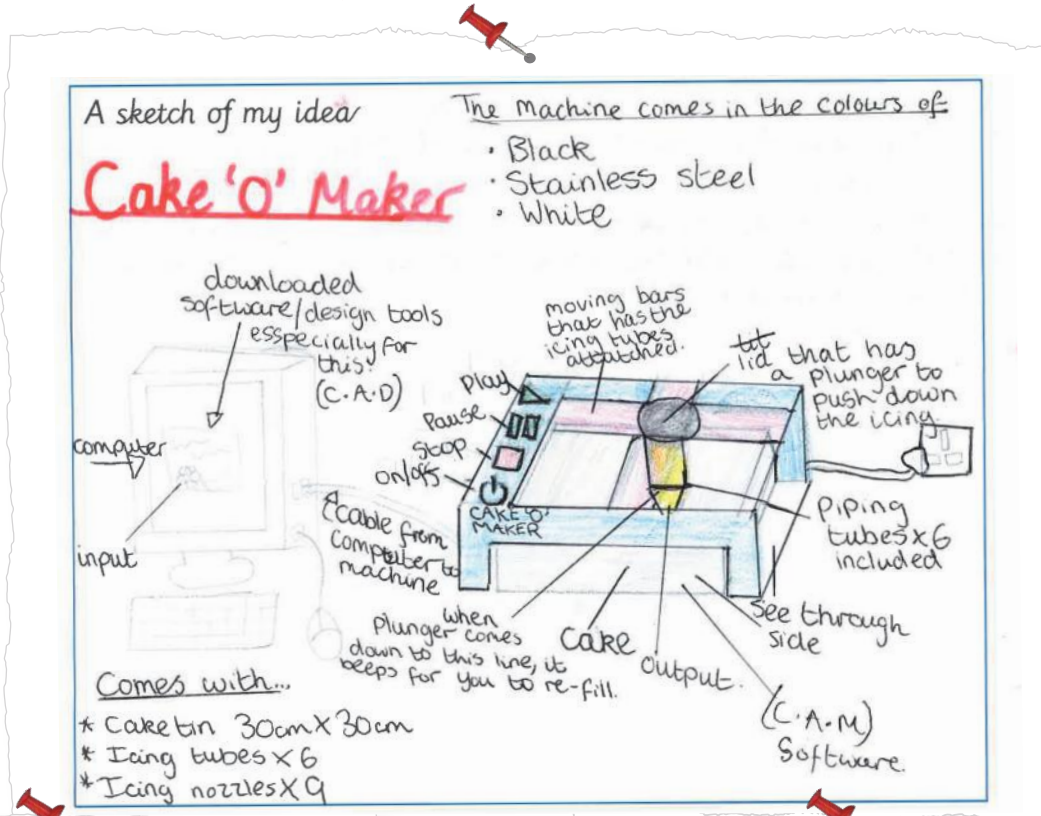 A sketch of my idea
The machine comes in the colours of
· Black
· Stainless steel
· White
Cake 'O' Maker
downloaded
software/design tools
esspecially for
this!
(C.A.D)
computer
input
cable from
computer to
machine
moving bars
that has the
icing tubes
attatched.
lid that has
a plunger to
push down
the icing.
Play
Pause
Stop
on/off
CAKE 'O'
MAKER
Piping
tubes x 6
included
See through
side
when
plunger comes
down to this line, it
beeps for you to re-fill.
Cake
output.
(C.A.M)
Software.
Comes with...
* Cake tin 30cm X 30cm
* Icing tubes X 6
* Icing nozzles X 9